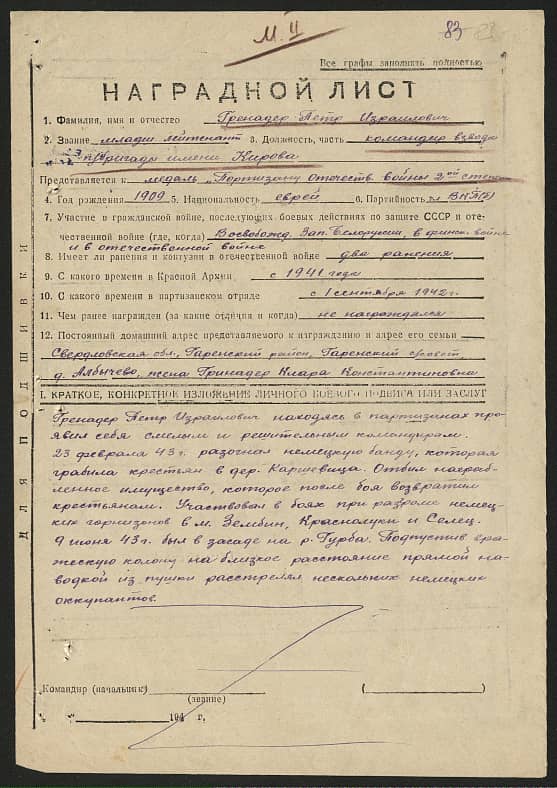 М. II
83
Все графы заполнять полностью
НАГРАДНОЙ ЛИСТ
1. Фамилия, имя и отчество Гренадер Петр Израилович
2. Звание младш. лейтенант 3. Должность, часть командир взвода
п/бригады имени Кирова
Представляется к медаль „Партизану Отечеств. войны 2ой степ.
4. Год рождения 1909 5. Национальность еврей 6. Партийность чл ВКП(б)
7. Участие в гражданской войне, последующих боевых действиях по защите СССР и оте-
чественной войне (где, когда) Восвобожд. Зап. Белоруссии, в финск. войне
и в отечественной войне
8. Имеет ли ранения и контузии в отечественной войне два ранения
9. С какого времени в Красной Армии с 1941 года
10. С какого времени в партизанском отряде с 1 сентября 1942 г.
11. Чем ранее награжден (за какие отличия и когда) не награждался
12. Постоянный домашний адрес представляемого к награждению и адрес его семьи
Свердловская обл., Гаренский район, Гаренский с/совет
д. Албычево, жена Гринадер Клара Константиновна
I. КРАТКОЕ, КОНКРЕТНОЕ ИЗЛОЖЕНИЕ ЛИЧНОГО БОЕВОГО ПОДВИГА ИЛИ ЗАСЛУГ
Гренадер Петр Израилович находясь в партизанах про-
явил себя смелым и решительным командирам.
23 февраля 43 г. разогнал немецкую банду, которая
грабила крестьян в дер. Каршевица. Отбил награб-
ленное имущество, которое после боя возвратил
крестьянам. Участвовал в боях при разгроме немец-
ких горнизонов в м. Зембин, Красналуки и Селец.
9 июня 43 г. был в засаде на р. Гурба. Подпустив вра-
жескую колону на близкое расстояние прямой на-
водкой из пушки расстрелял нескольких немецких
оккупантов.
Командир (начальник)
(звание)
194 г.
ДЛЯ ПОДШИВКИ